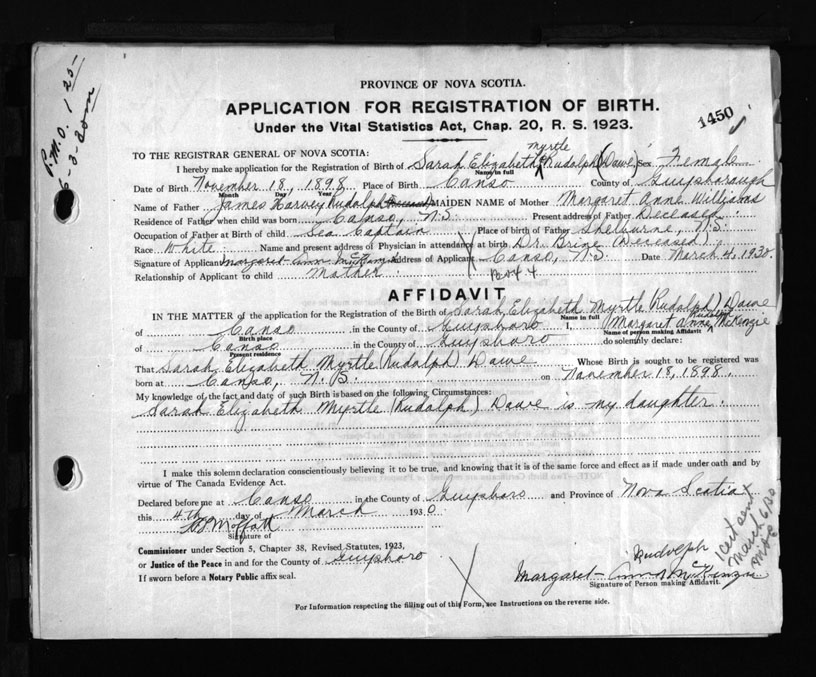 P.M.O. 1 25-
6-3-30
PROVINCE OF NOVA SCOTIA.
APPLICATION FOR REGISTRATION OF BIRTH.
Under the Vital Statistics Act, Chap. 20, R. S. 1923.
1450
TO THE REGISTRAR GENERAL OF NOVA SCOTIA:
myrtle
I hereby make application for the Registration of Birth of Sarah Elizabeth Rudolph (Dawe) Sex Female
Name in full
Date of Birth November 18, 1898 Place of Birth Canso County of Guysborough
Month Day Year
Name of Father James Harvey Rudolph MAIDEN NAME of Mother Margaret Anne Williams
Residence of Father when child was born Canso, N.S. Present address of Father Deceased
Occupation of Father at Birth of child Sea Captain Place of birth of Father Shelburne, N.S.
Race White Name and present address of Physician in attendance at birth Dr. Brine (Deceased)
Signature of Applicant Margaret Ann McKenzie Address of Applicant Canso, N.S. Date March 4, 1930.
Relationship of Applicant to child Mother Box 4
AFFIDAVIT
IN THE MATTER of the application for the Registration of Birth of Sarah Elizabeth Myrtle (Rudolph) Dawe
Name in full
of Canso in the County of Guysboro I, (Margaret Anne Rudolph McKenzie
Birth place Name of person making Affidavit
of Canso in the County of Guysboro do solemnly declare:
Present residence
That Sarah Elizabeth Myrtle (Rudolph) Dawe Whose Birth is sought to be registered was
born at Canso, N.S. on November 18, 1898.
My knowledge of the fact and date of such Birth is based on the following Circumstances:
Sarah Elizabeth Myrtle (Rudolph) Dawe is my daughter.
I make this solemn declaration conscientiously believing it to be true, and knowing that it is of the same force and effect as if made under oath and by
virtue of The Canada Evidence Act.
Declared before me at Canso in the County of Guysboro and Province of Nova Scotia
this 4th day of March 1930
Moffatt
Signature of
Commissioner under Section 5, Chapter 38, Revised Statutes, 1923,
or Justice of the Peace in and for the County of Guysboro
If sworn before a Notary Public affix seal.
Rudolph
Margaret Ann McKenzie
Signature of Person making Affidavit.
1 Cert sent
March 6/30
For Information respecting the filling out of this Form, see Instructions on the reverse side.